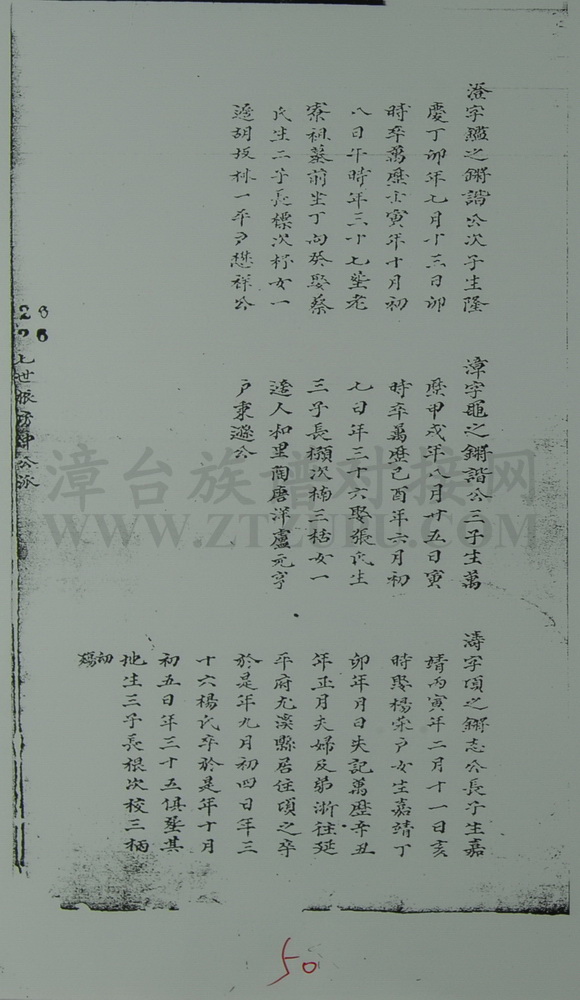 澄字鑑之鏘諧公次子生隆
慶丁卯年七月十三日卯
時卒萬歷壬寅年十月初
八日午時年三十七塟老
寮祖墓前坐丁向癸娶蔡
氏生二子長標次杼女一
適胡坂林一平户懋祥公
漳字黽之鏘諧公三子生萬
歷甲戌年八月廿五日寅
時卒萬歷己酉年六月初
七日年三十六娶張氏生
三子長櫇次楠三枯女一
適人和里陶唐洋盧元亨
户秉遜公
濤字項之鏘志公長子生嘉
靖丙寅年二月十一日亥
時娶楊榮户女生嘉靖丁
卯年月日失記萬歷辛丑
年正月夫婦及弟浙往延
平府尤溪縣居住項之卒
於是年九月初四日年三
十六楊氏卒於是年十月
初五日年三十五俱塟其
地生三子長根次校三柄
初
殤
26
26
七世派
漳台族谱对接网
WWW.ZTZUPU.COM
50